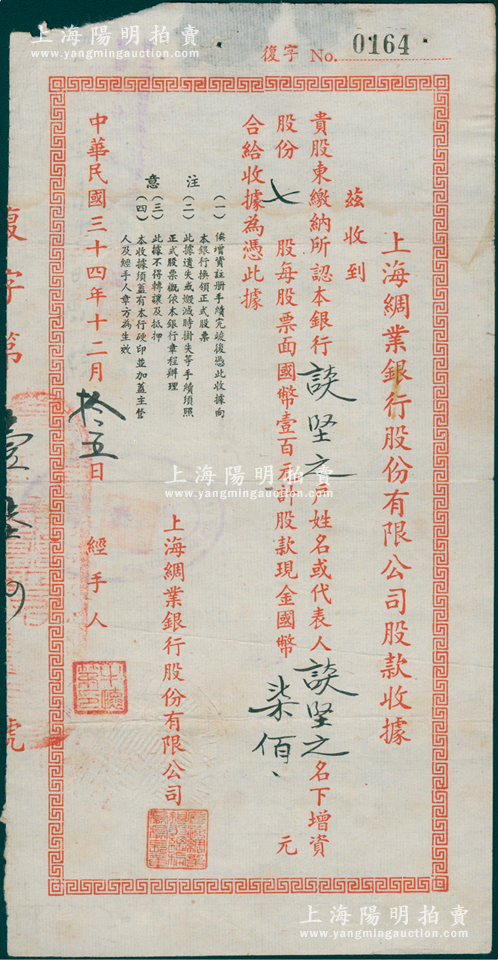 復字 No. 0164
上海綢業銀行股份有限公司股款收據
茲收到
貴股東繳納所認本銀行談堅之姓名或代表人談堅之名下增資
股份七股每股票面國幣壹百元計股款現金國幣柒佰元
合給收據為憑此據
注意
(一)俟增資註冊手續完竣後憑此收據向
本銀行換領正式股票
(二)此據遺失或燬滅時掛失等手續須照
正式股票概依本銀行章程辦理
(三)此據不得轉讓及抵押
(四)本收據須蓋有本行硬印並加蓋主管
人及經手人章方為生效
上海綢業銀行股份有限公司
中華民國三十四年十二月拾五日
經手人
復字第壹陸四號
上海陽明拍賣
www.yangmingauction.com
上海陽明拍賣
www.yangmingauction.com
上海陽明拍賣
www.yangmingauction.com